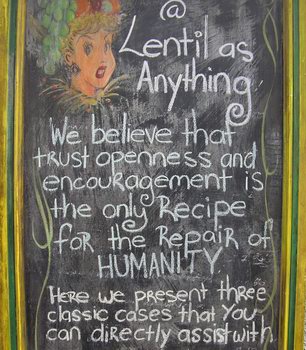 @
Lentil as
Anything
We believe that
trust openness and
encouragement is
the only Recipe
for the Repair of
HUMANITY
Here we present three
classic cases that You
can directly assist with